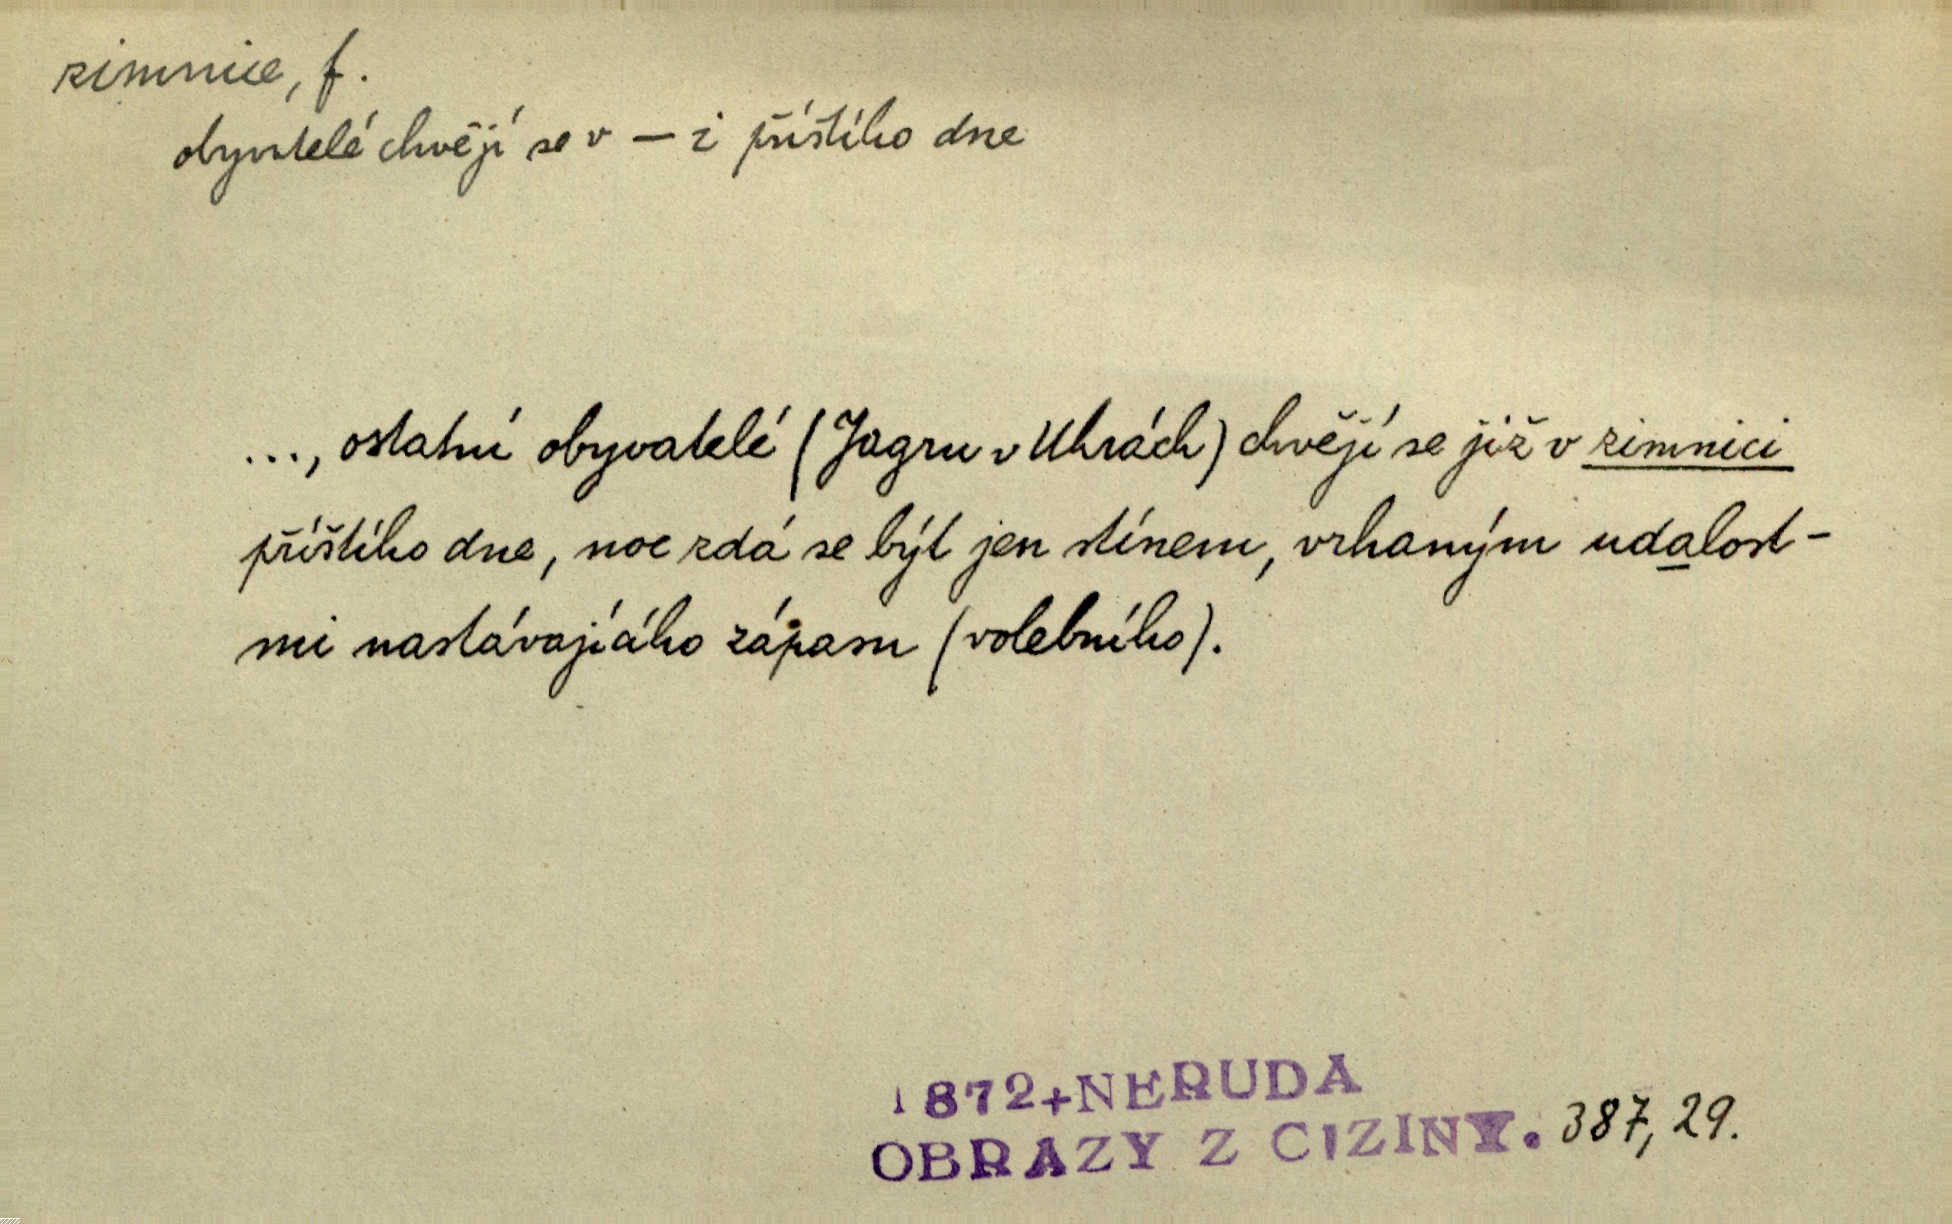 zimnice, f.
obyvatelé chvějí se v — i příštího dne
..., ostatní obyvatelé (Jagru v Uhrách) chvějí se již v zimnici
příštího dne, noc zdá se být jen stínem, vrhaným udalost-
mi nastávajícího zápasu (volebního).
1872+NERUDA
OBRAZY Z CIZINY. 387, 29.